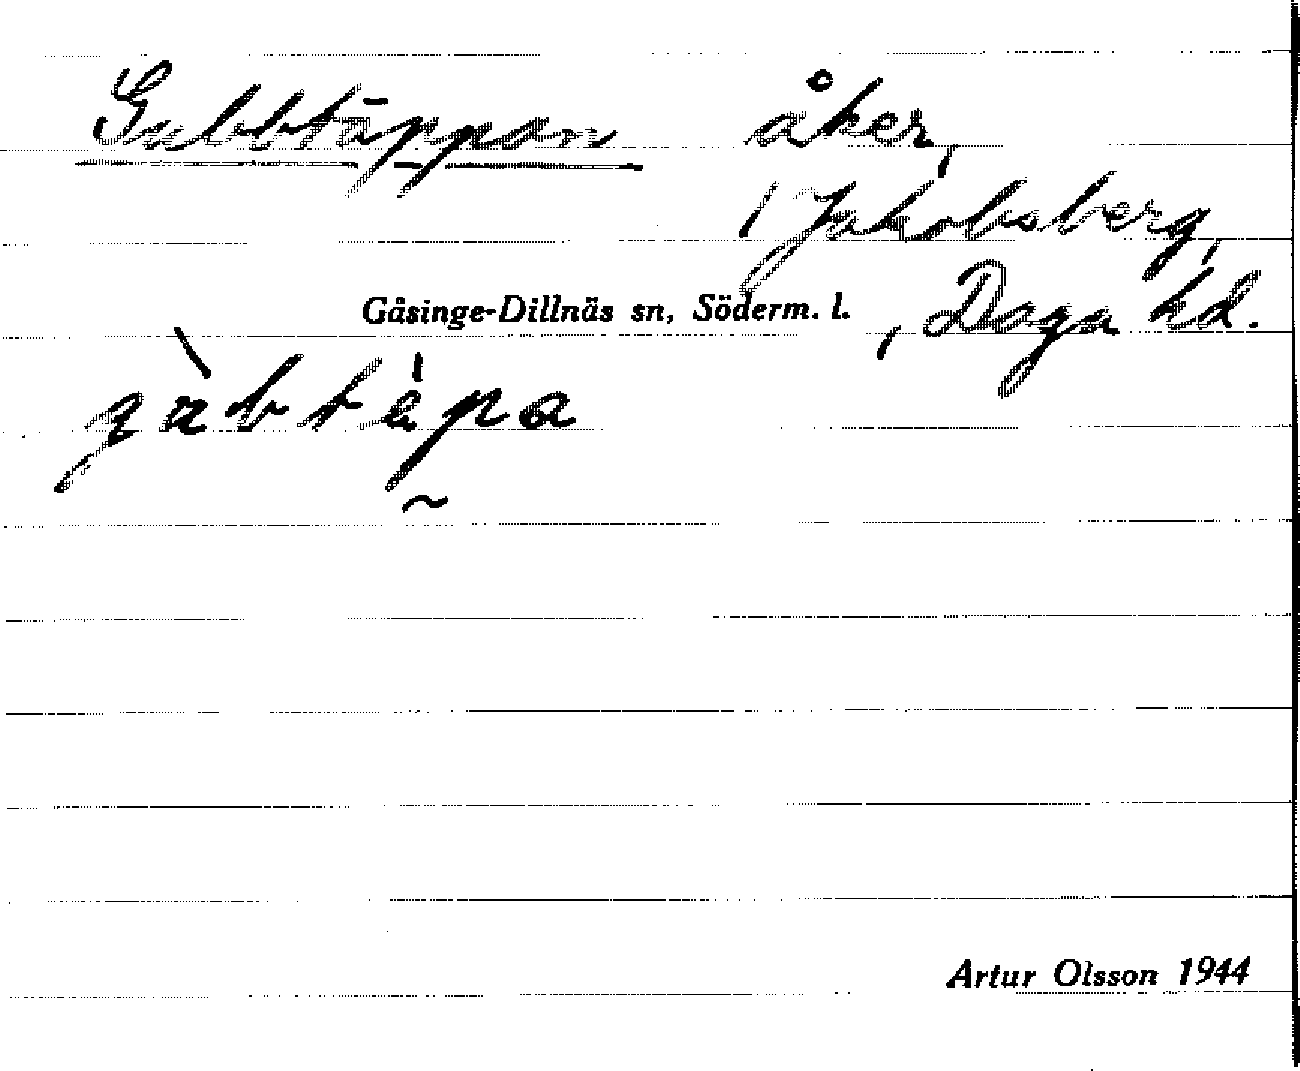 Gubbtäppan åker,
/ Jakobsberg,
Gåsinge-Dillnäs sn, Söderm. l. , Daga hd.
Artur Olsson 1944